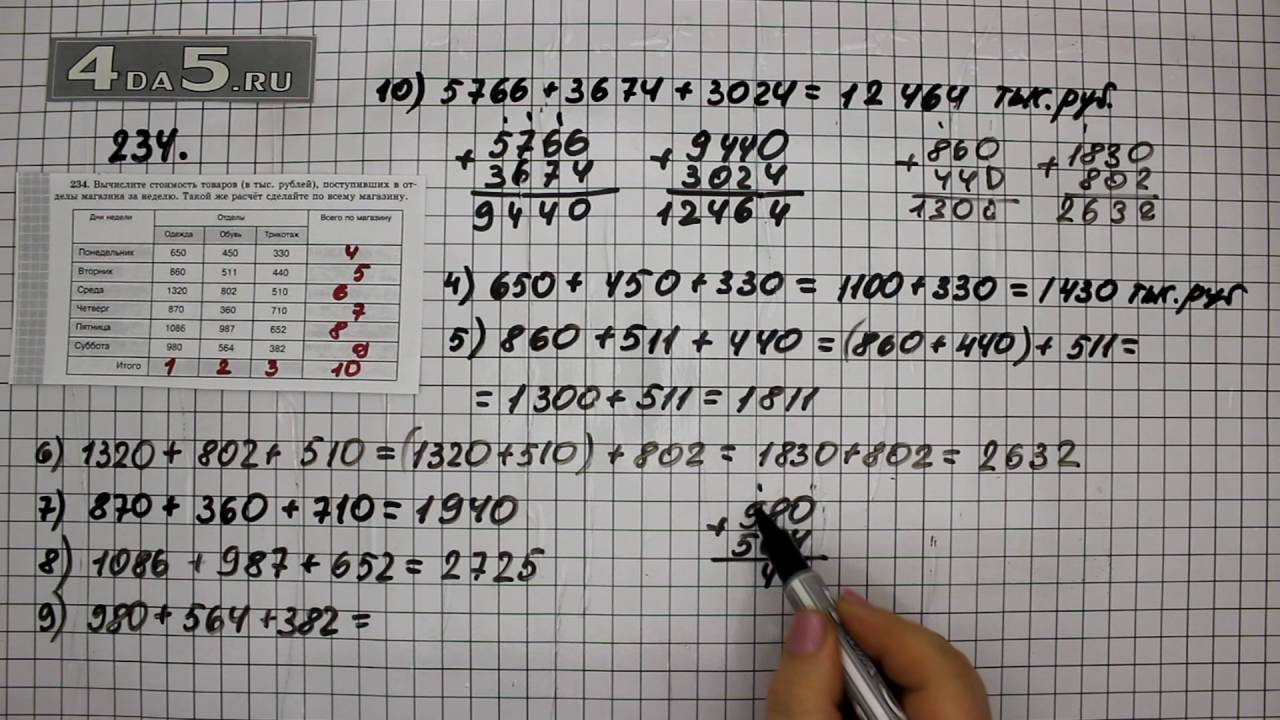 4DA5.RU
234.
234. Вычислите стоимость товаров (в тыс. рублей), поступивших в от-
делы магазина за неделю. Такой же расчёт сделайте по всему магазину.
Дни недели Отделы Всего по магазину
Одежда Обувь Трикотаж
Понедельник 650 450 330 4
Вторник 860 511 440 5
Среда 1320 802 510 6
Четверг 870 360 710 7
Пятница 1086 987 652 8
Суббота 980 564 382 9
Итого 1 2 3 10
10) 5766 + 3674 + 3024 = 12 464 тыс. руб.
5766
+ 3674
9440
9440
+ 3024
12464
860
+ 440
1300
1830
+ 802
2632
4) 650 + 450 + 330 = 1100 + 330 = 1430 тыс. руб
5) 860 + 511 + 440 = (860 + 440) + 511 =
= 1300 + 511 = 1811
6) 1320 + 802 + 510 = (1320 + 510) + 802 = 1830 + 802 = 2632
7) 870 + 360 + 710 = 1940
8) 1086 + 987 + 652 = 2725
9) 980 + 564 + 382 =
+ 980
4